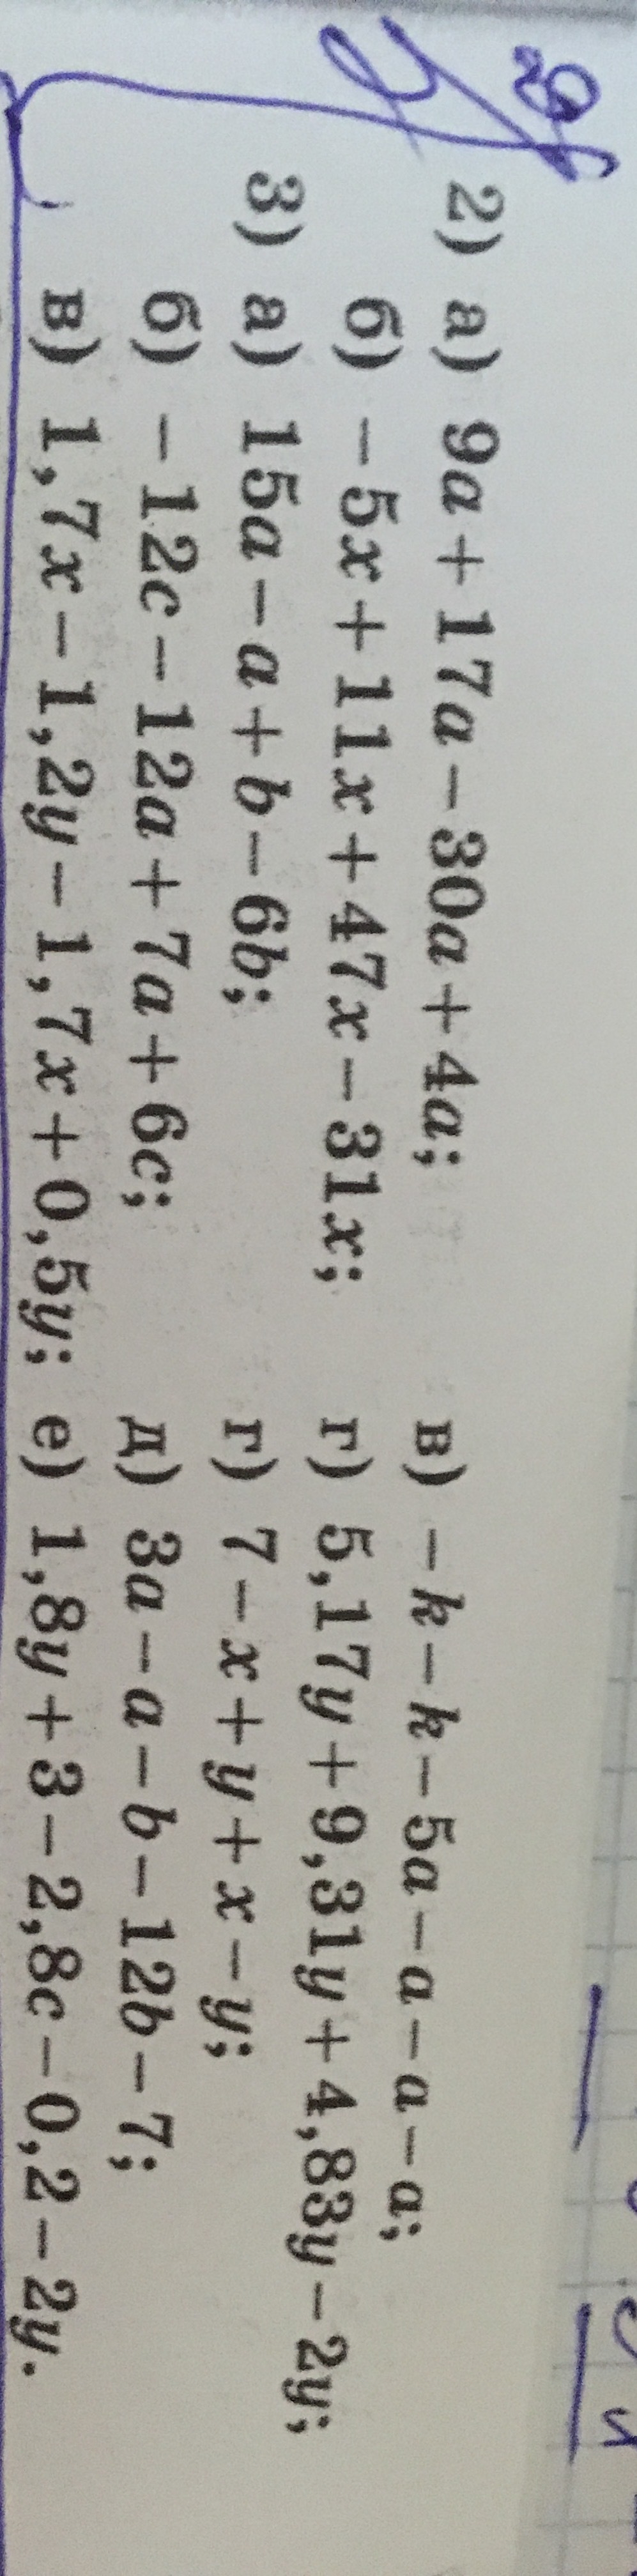 2) а) 9a + 17a − 30a + 4a; в) −k − k − 5a − a − a − a;
б) −5x + 11x + 47x − 31x; г) 5,17y + 9,31y + 4,83y − 2y;
3) а) 15a − a + b − 6b; г) 7 − x + y + x − y;
б) −12c − 12a + 7a + 6c; д) 3a − a − b − 12b − 7;
в) 1,7x − 1,2y − 1,7x + 0,5y; е) 1,8y + 3 − 2,8c − 0,2 − 2y.